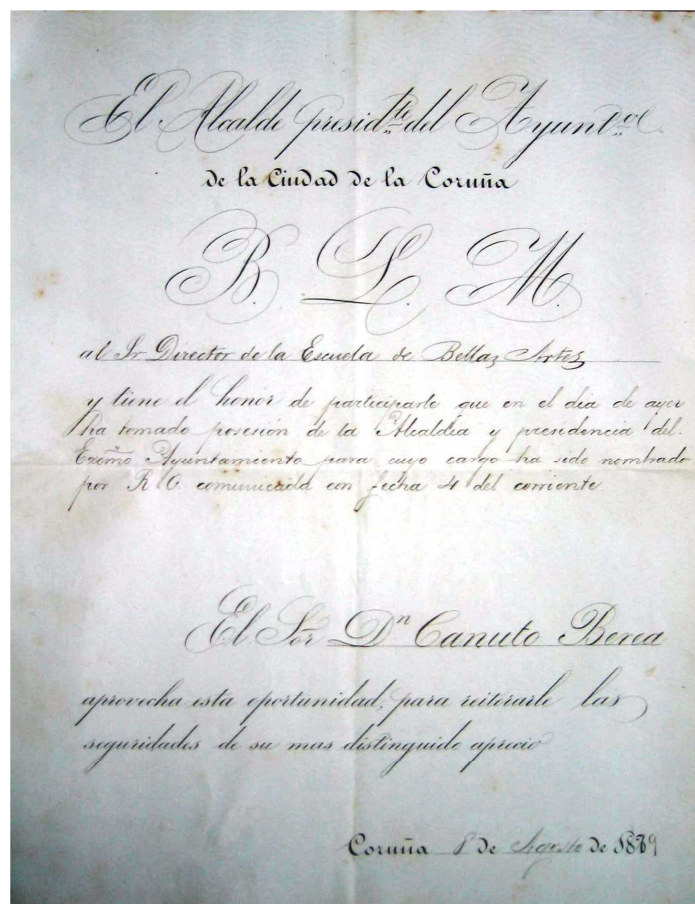 El Alcalde presid.te del Ayunt.o C.
de la Ciudad de la Coruña
B. L. M.
al Sr Director de la Escuela de Bellas Artes
y tiene el honor de participarle que en el dia de ayer
ha tomado posesión de la Alcaldía y presidencia del
Excmo Ayuntamiento para cuyo cargo ha sido nombrado
por R O. comunicada con fecha 4 del corriente
El Sor Dn Canuto Berea
aprovecha esta oportunidad, para reiterarle las
seguridades de su mas distinguido aprecio
Coruña 8 de Agosto de 1889